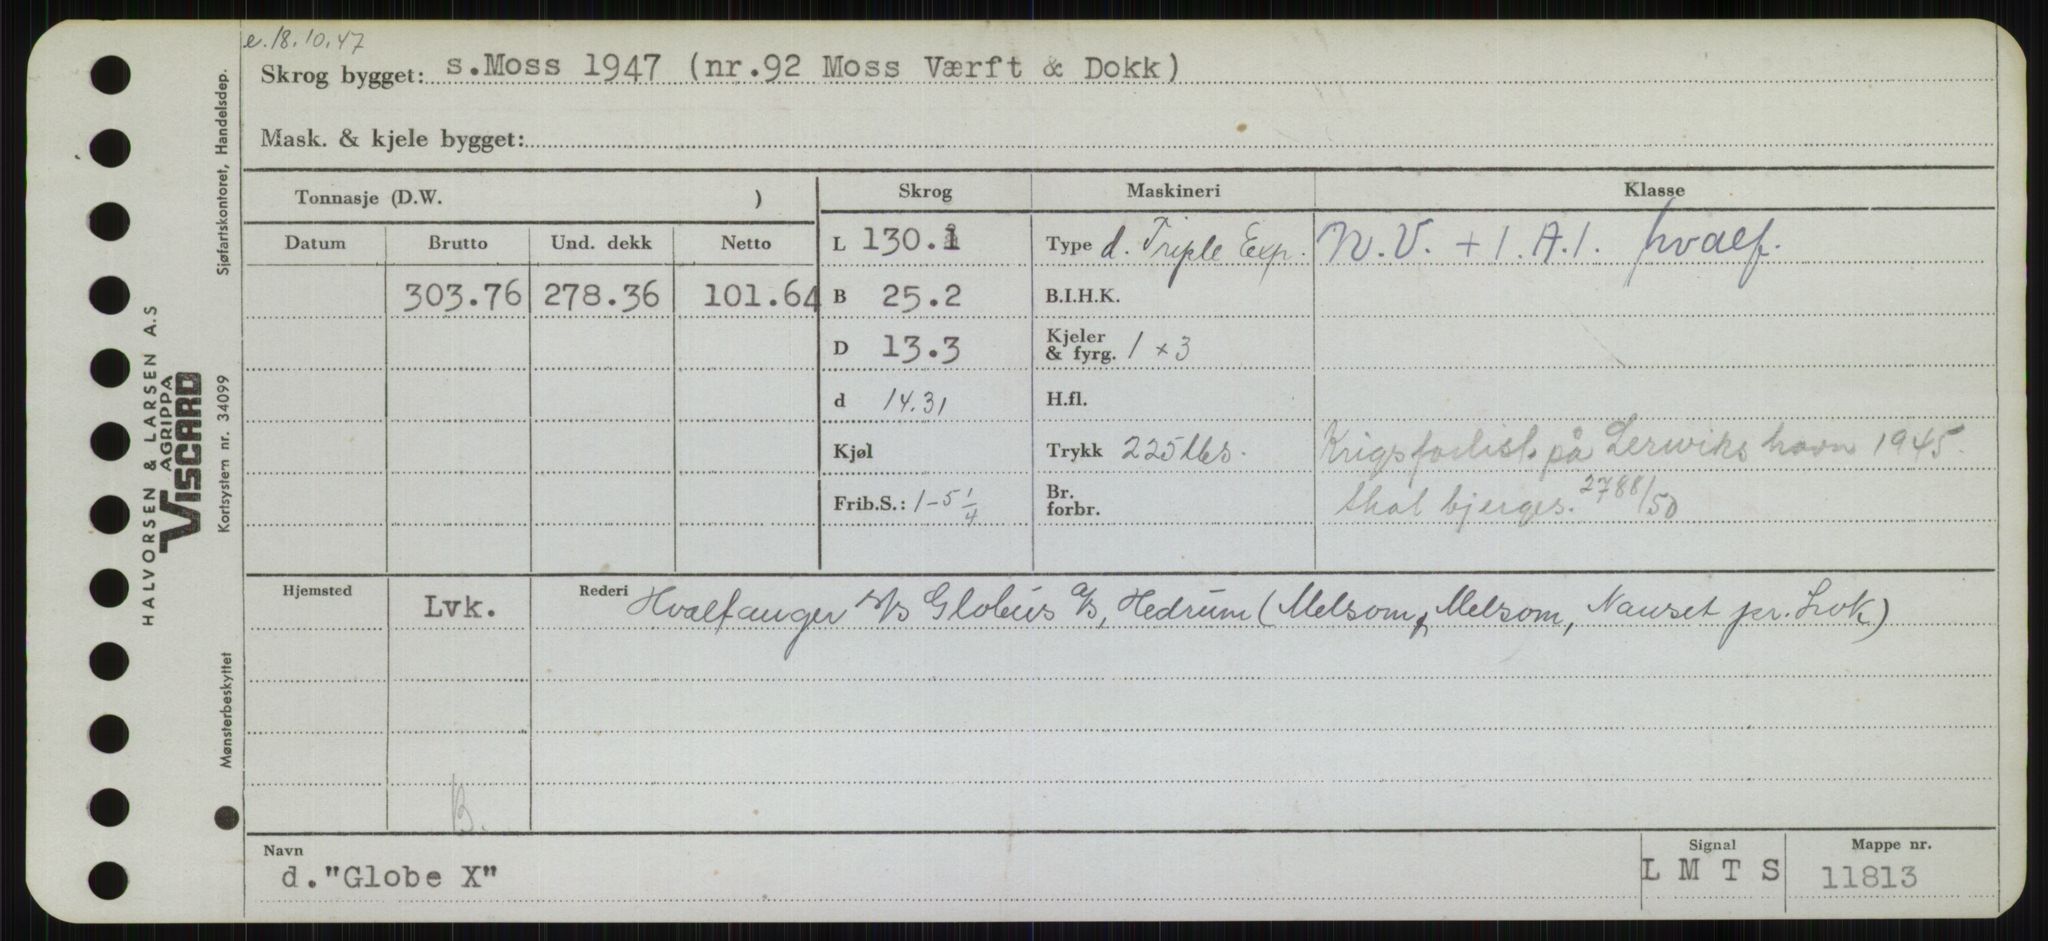 e.18.10.47
Skrog bygget: s.Moss 1947 (nr.92 Moss Værft & Dokk)
Mask. & kjele bygget:
Tonnasje (D.W. )
Skrog Maskineri Klasse
Datum Brutto Und. dekk Netto
L 130.1 Type d. Triple Exp. N.V. + 1.A.1. hvalf.
303.76 278.36 101.64 B 25.2 B.I.H.K.
D 13.3 Kjeler & fyrg. 1 x 3
d 14.31 H.fl.
Kjøl Trykk 225 lbs. Krigsforlist på Lerwiks havn 1945.
Frib.S.: 1-5 1/4 Br. forbr. skal bjerges. 2788/50
Hjemsted Lvk. Rederi Hvalfanger A/S Globus A/S, Hedrum (Melsom & Melsom, Nanset pr. Lvk)
B.
Navn Signal Mappe nr.
d."Globe X" L M T S 11813
HALVORSEN & LARSEN A.S
AGRIPPA
VISCARD
Mønsterbeskyttet Kortsystem nr. 34099 Sjøfartskontoret, Handelsdep.